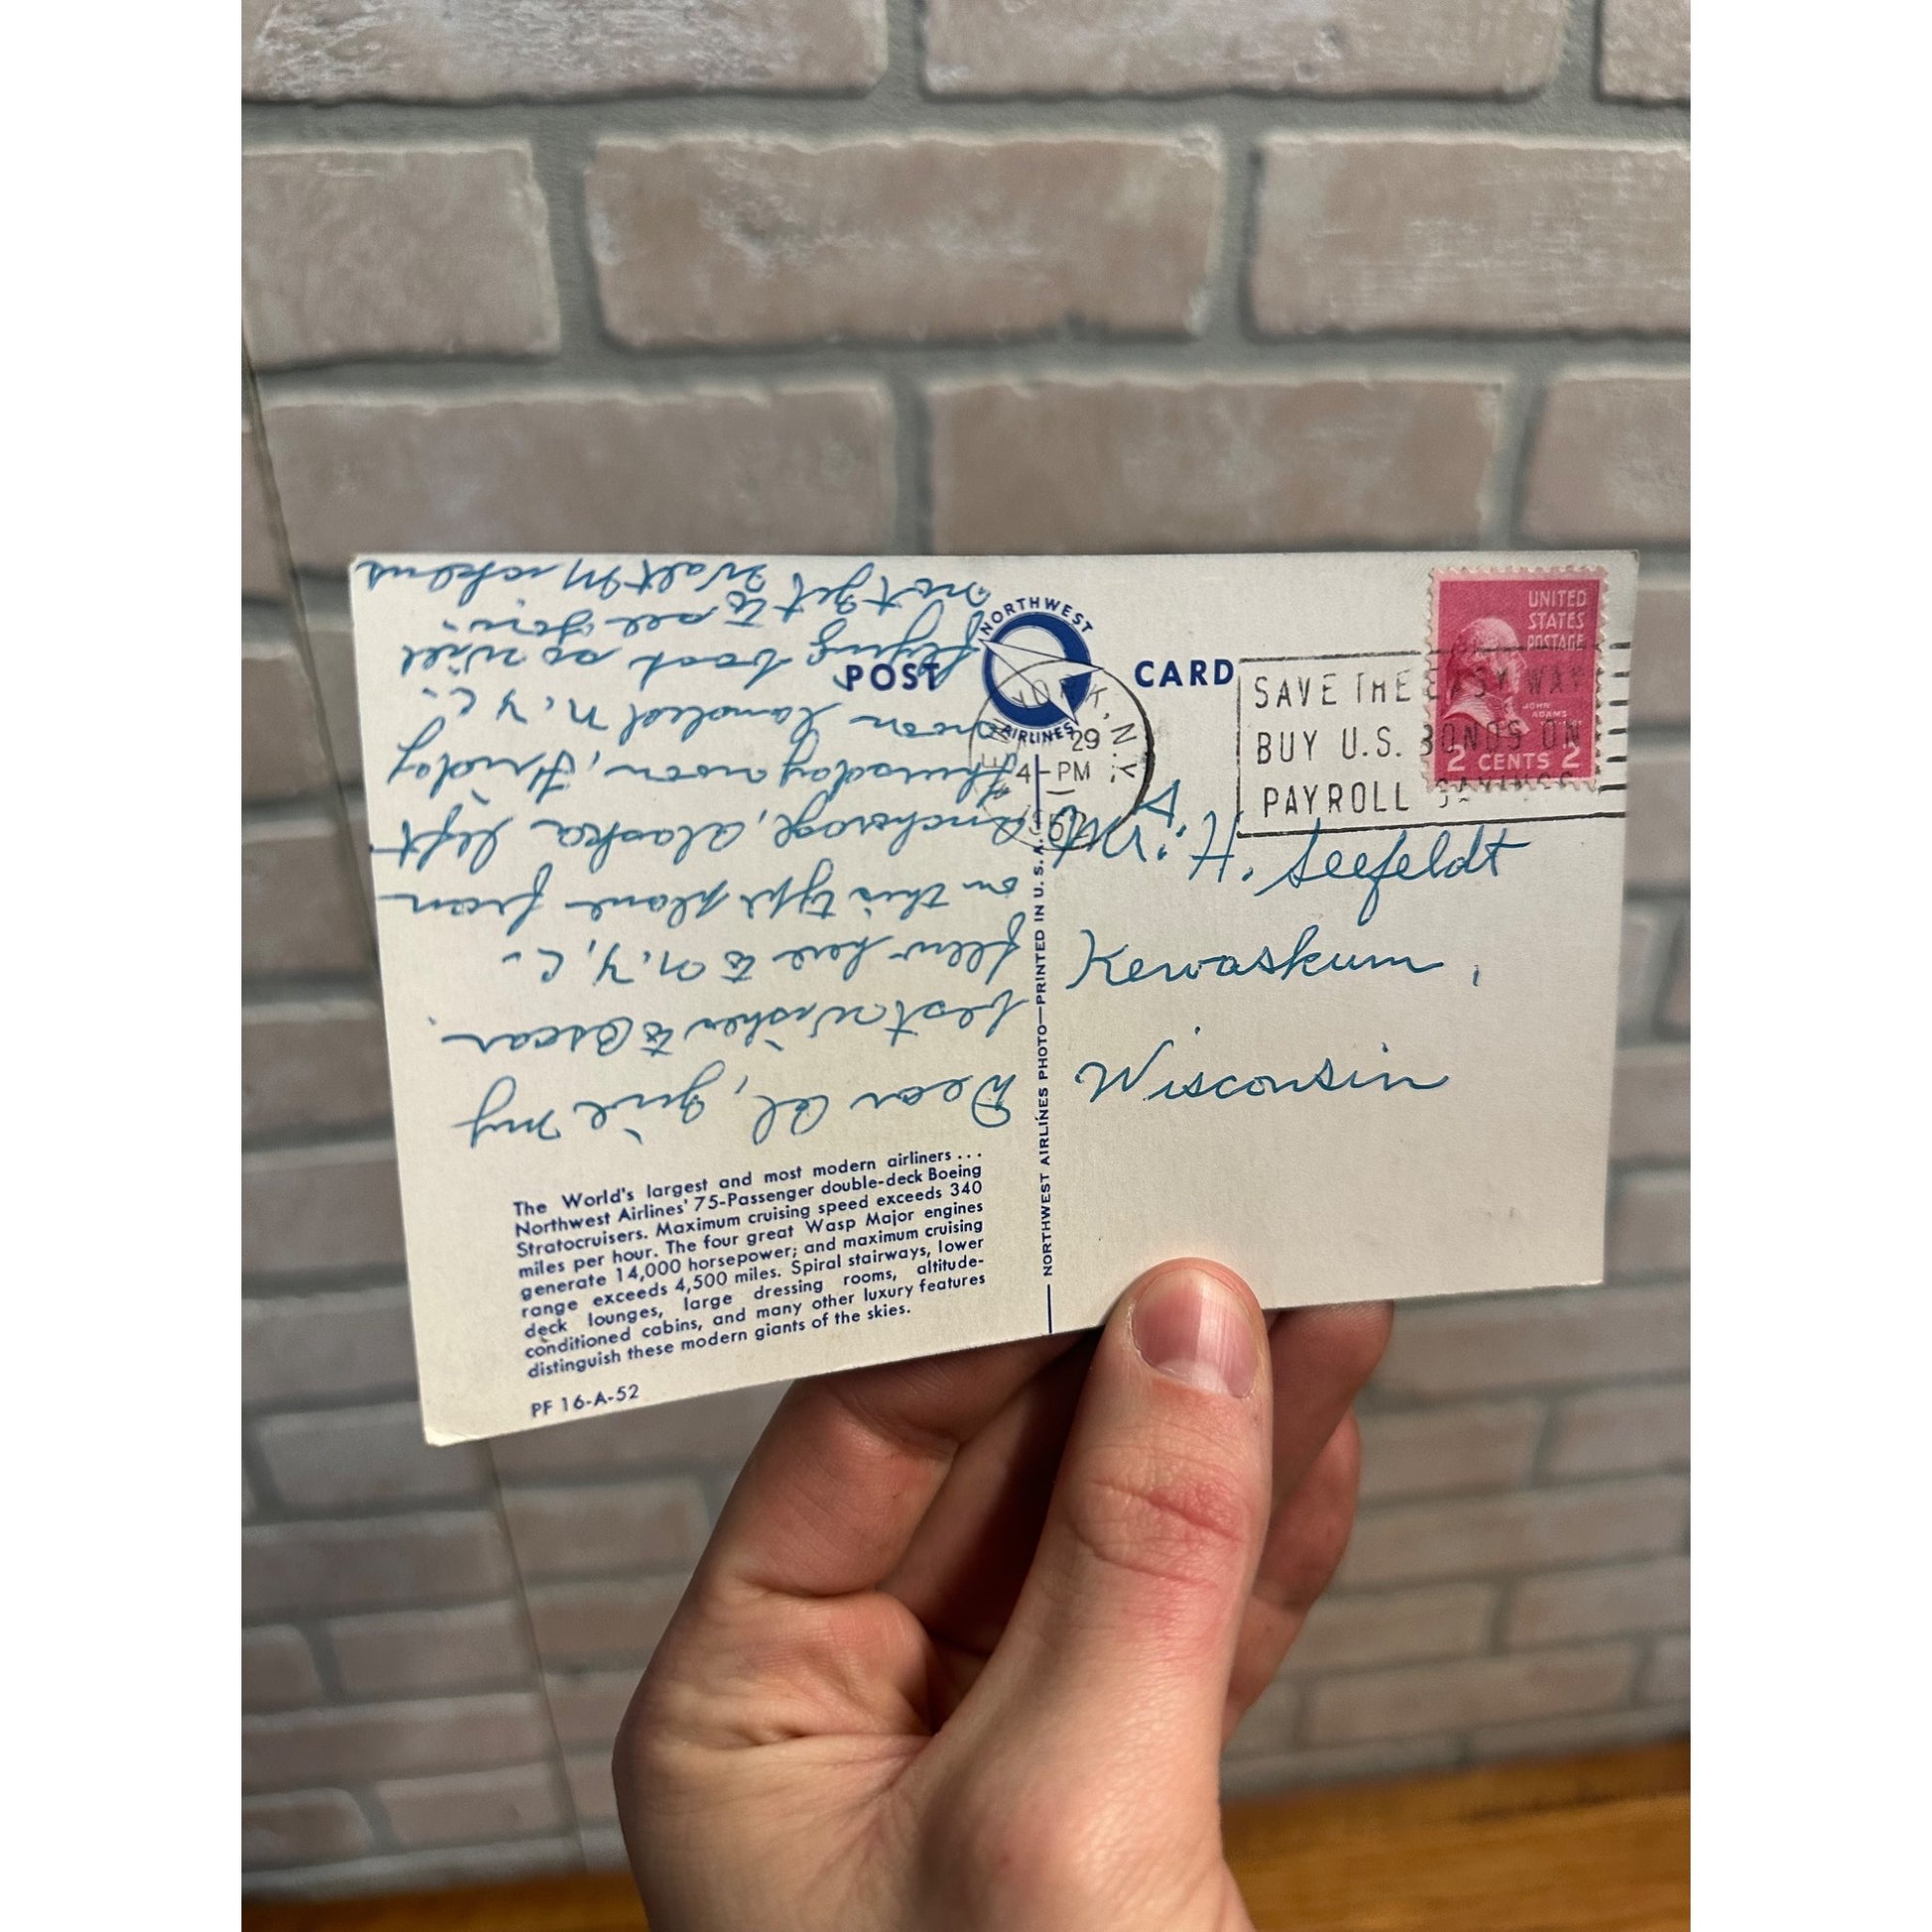 POST CARD
NORTHWEST
AIRLINES
YORK, N.Y.
29
4-PM
SAVE THE EASY WAY
BUY U.S. BONDS ON
PAYROLL SAVINGS
UNITED
STATES
POSTAGE
JOHN
ADAMS
2 CENTS 2
Dear Al, give my
best wishes to Oscar.
flew here to N.Y.C.
on this type plane from
anchorage, alaska left
thursday noon, friday
noon landed N.Y.C.
flying back so will
not get to see you.
Walt Mickelus
Mr. A. H. Seefeldt
Kewaskum,
Wisconsin
NORTHWEST AIRLINES PHOTO—PRINTED IN U. S. A.
The World's largest and most modern airliners . . .
Northwest Airlines' 75-Passenger double-deck Boeing
Stratocruisers. Maximum cruising speed exceeds 340
miles per hour. The four great Wasp Major engines
generate 14,000 horsepower; and maximum cruising
range exceeds 4,500 miles. Spiral stairways, lower
deck lounges, large dressing rooms, altitude-
conditioned cabins, and many other luxury features
distinguish these modern giants of the skies.
PF 16-A-52